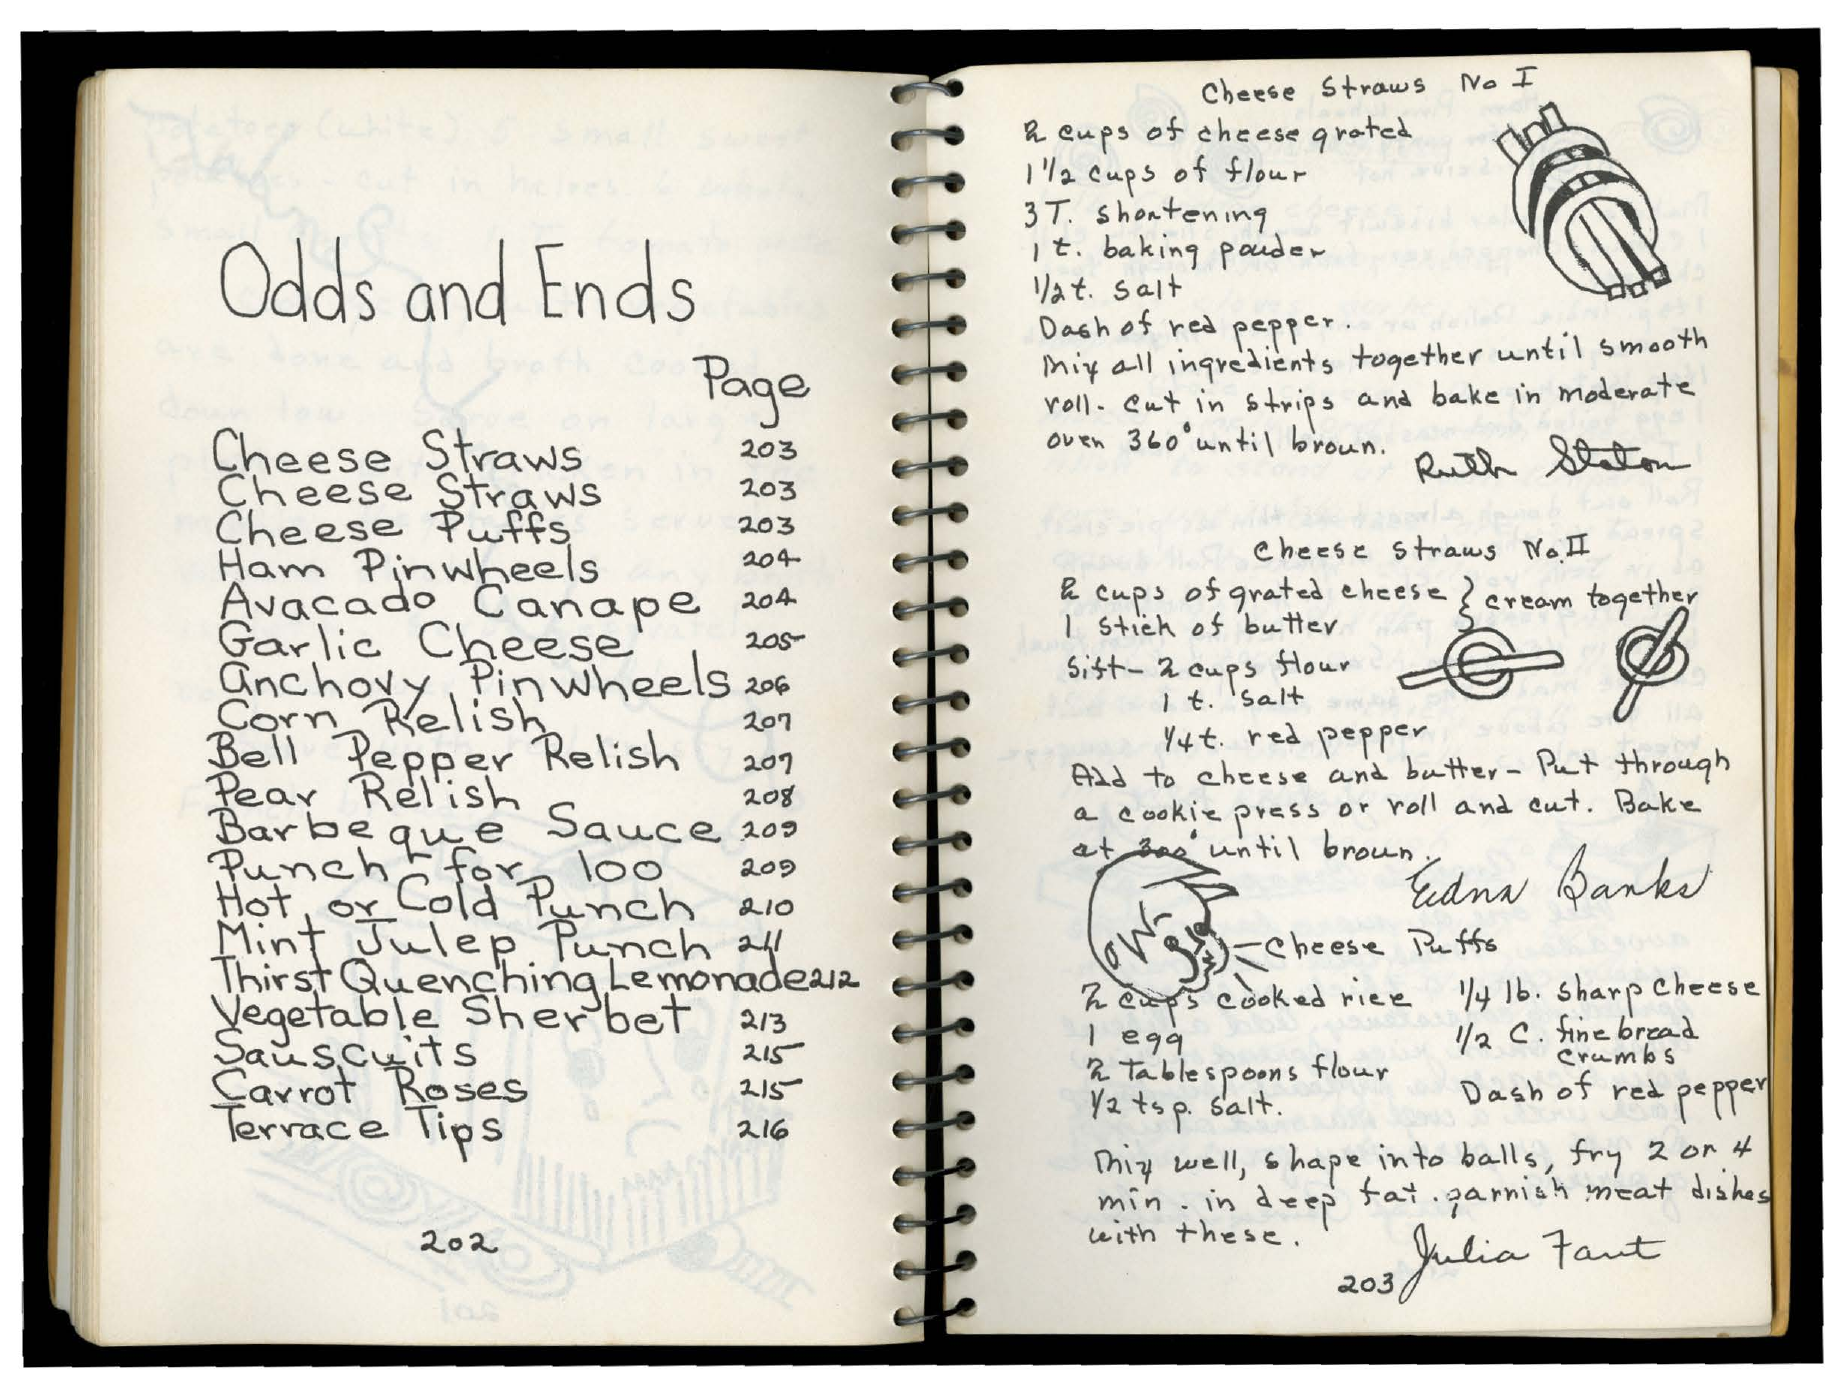 Odds and Ends
Page
Cheese Straws 203
Cheese Straws 203
Cheese Puffs 203
Ham Pinwheels 204
Avacado Canape 204
Garlic Cheese 205
Anchovy Pinwheels 206
Corn Relish 207
Bell Pepper Relish 207
Pear Relish 208
Barbeque Sauce 209
Punch for 100 209
Hot or Cold Punch 210
Mint Julep Punch 211
Thirst Quenching Lemonade 212
Vegetable Sherbet 213
Sauscuits 215
Carrot Roses 215
Terrace Tips 216
202
Cheese Straws No I
2 cups of cheese grated
1 1/2 cups of flour
3 T. shortening
1 t. baking powder
1/2 t. salt
Dash of red pepper.
Mix all ingredients together until smooth
roll. cut in strips and bake in moderate
oven 360° until brown.
Ruth Staton
Cheese Straws No. II
2 cups of grated cheese } cream together
1 stick of butter
Sift- 2 cups flour
1 t. salt
1/4 t. red pepper
Add to cheese and butter- Put through
a cookie press or roll and cut. Bake
at 300° until brown.
Edna Banks
Cheese Puffs
2 cups cooked rice 1/4 lb. sharp cheese
1 egg 1/2 C. fine bread
crumbs
2 tablespoons flour
1/2 tsp. salt. Dash of red pepper
Mix well, shape into balls, fry 2 or 4
min. in deep fat. garnish meat dishes
with these.
Julia Fant
203